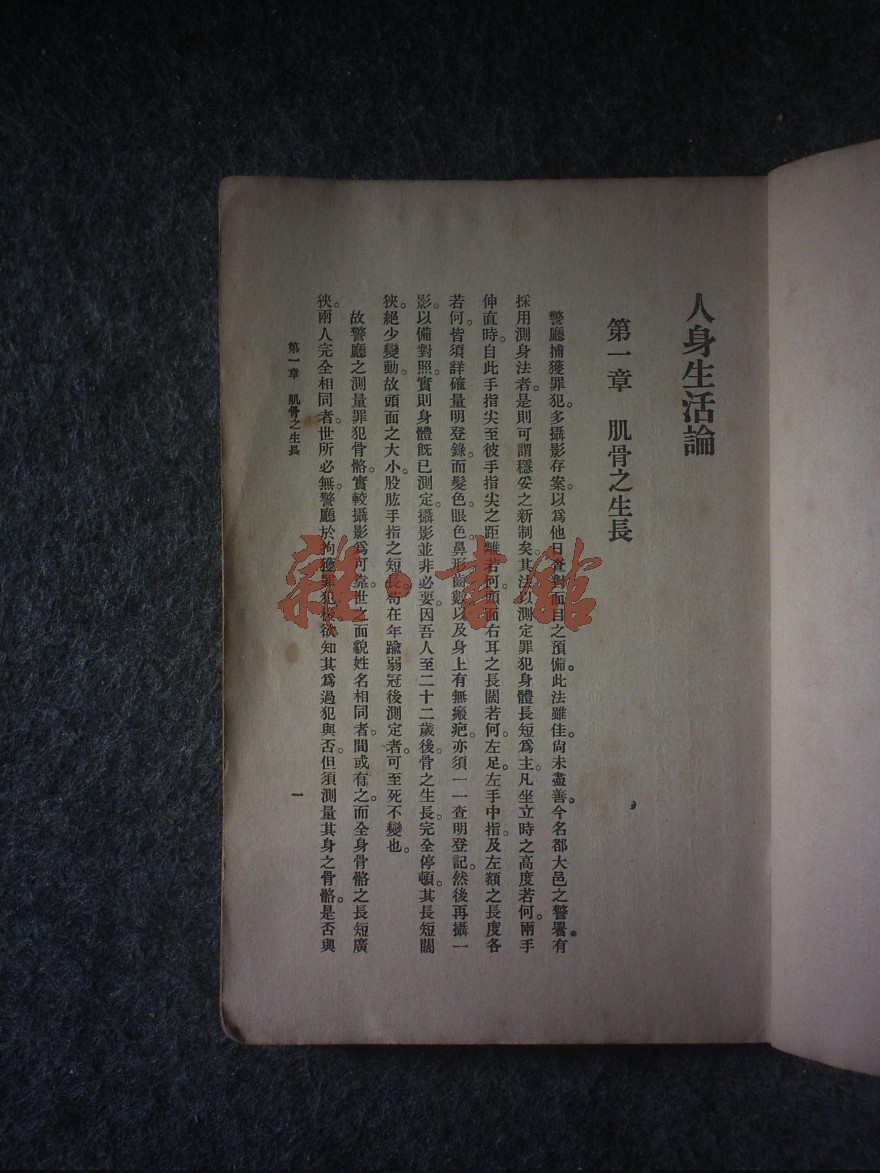 人身生活論
第一章　肌骨之生長
警廳捕獲罪犯。多攝影存案。以爲他日查對面目之預備。此法雖佳。尙未盡善。今名郡大邑之警署。有
採用測身法者。是則可謂穩妥之新制矣。其法以測定罪犯身體長短爲主。凡坐立時之高度若何。兩手
伸直時。自此手指尖至彼手指尖之距離若何。頭面右耳之長闊若何。左足。左手中指。及左額之長度各
若何。皆須詳確量明登錄。而髮色。眼色。鼻形。齒數。以及身上有無瘢疤。亦須一一查明登記。然後再攝一
影。以備對照。實則身體旣已測定。攝影並非必要。因吾人至二十二歲後。骨之生長。完全停頓。其長短闊
狹。絕少變動。故頭面之大小。股肱手指之短長。苟在年踰弱冠後測定者。可至死不變也。
故警廳之測量罪犯骨骼。實較攝影爲可靠。世之面貌姓名相同者。間或有之。而全身骨骼之長短廣
狹。兩人完全相同者。世所必無。警廳於拘獲罪犯後。欲知其爲過犯與否。但須測量其身之骨骼。是否與
第一章　肌骨之生長
一
雜·書館